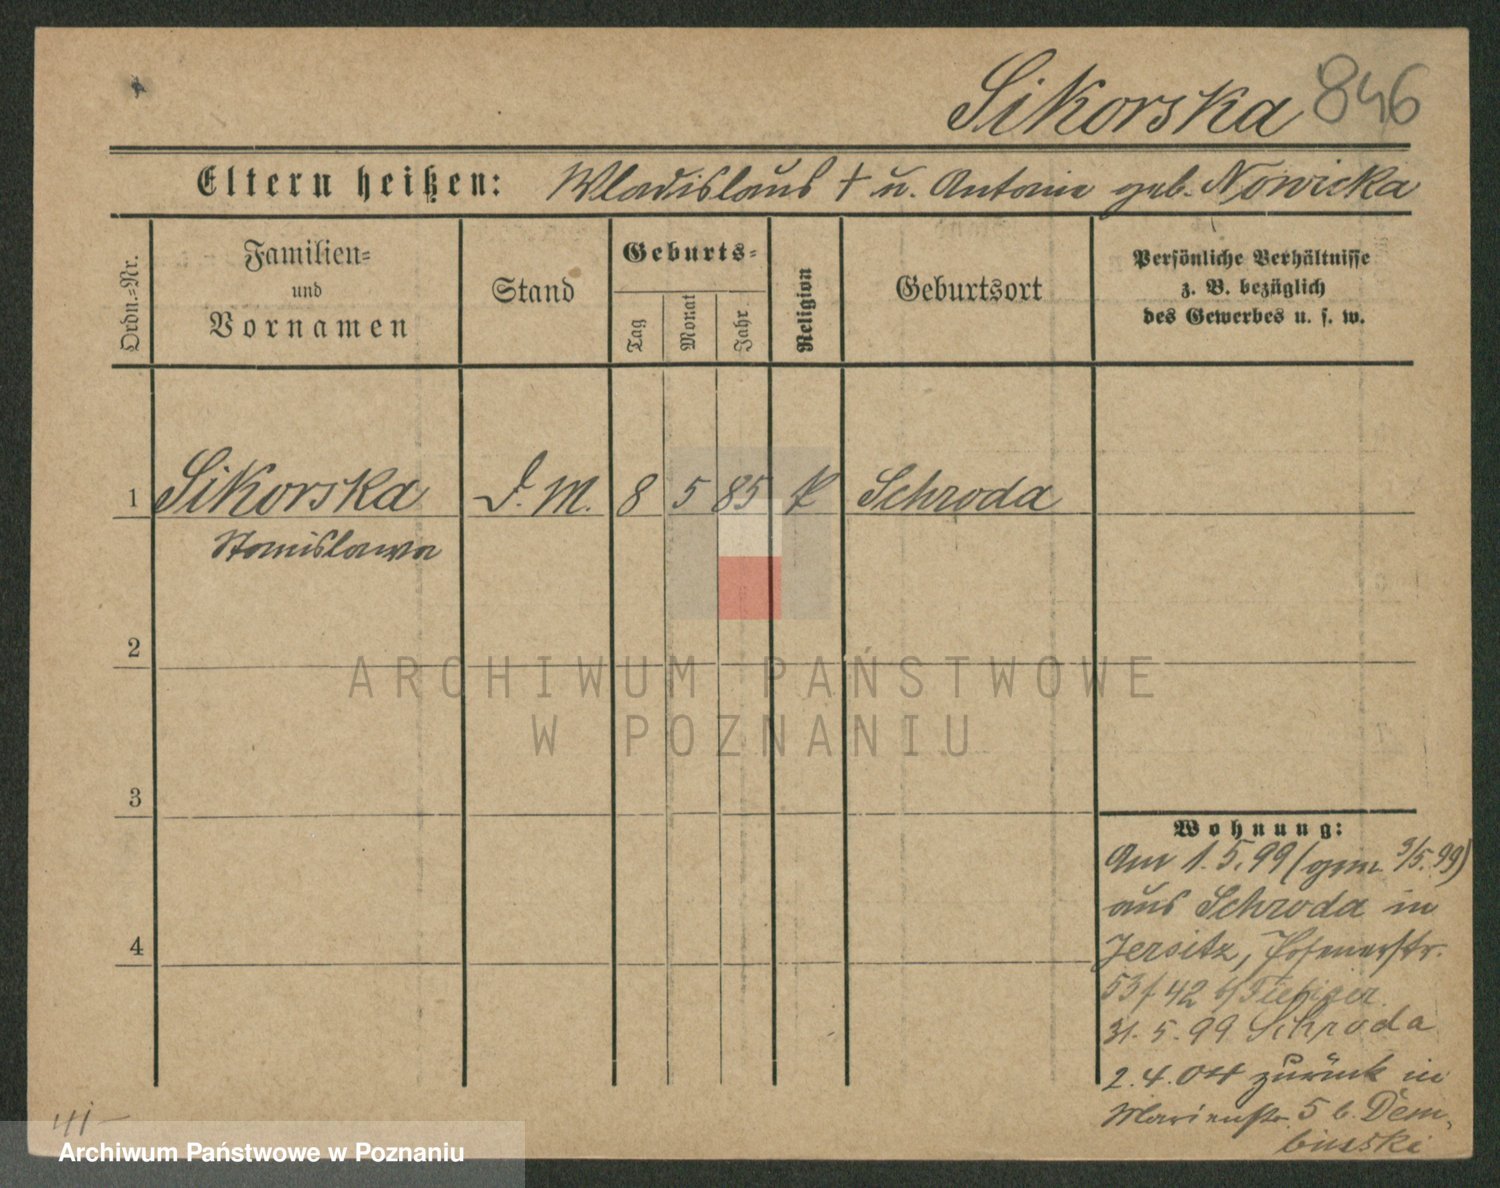 Sikorska 846
Eltern heißen: Wladislaus † u. Antonie geb. Nowicka
Ordn.-Nr.
Familien-
und
Vornamen
Stand
Geburts-
Tag
Monat
Jahr
Religion
Geburtsort
Persönliche Verhältnisse
z. B. bezüglich
des Gewerbes u. s. w.
1 Sikorska D. M. 8 5 85 k Schroda
Stanislawa
2
3
4
Wohnung:
Am 1. 5. 99 (gem. 3/5. 99)
aus Schroda in
Jersitz, Posenerstr.
53/42 b/ Fiebiger
31. 5. 99 Schroda
2. 4. 04 zurück in
Marienstr. 5 b. Dem-
binski
ARCHIWUM PAŃSTWOWE
W POZNANIU
Archiwum Państwowe w Poznaniu